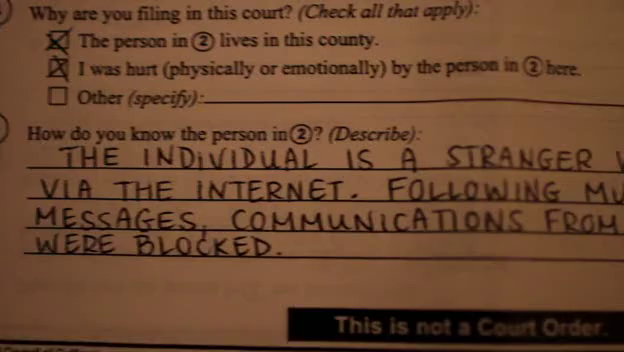 Why are you filing in this court? (Check all that apply):
The person in ② lives in this county.
I was hurt (physically or emotionally) by the person in ② here.
Other (specify):
How do you know the person in ②? (Describe):
THE INDIVIDUAL IS A STRANGER
VIA THE INTERNET. FOLLOWING
MESSAGES, COMMUNICATIONS FROM
WERE BLOCKED.
This is not a Court Order.